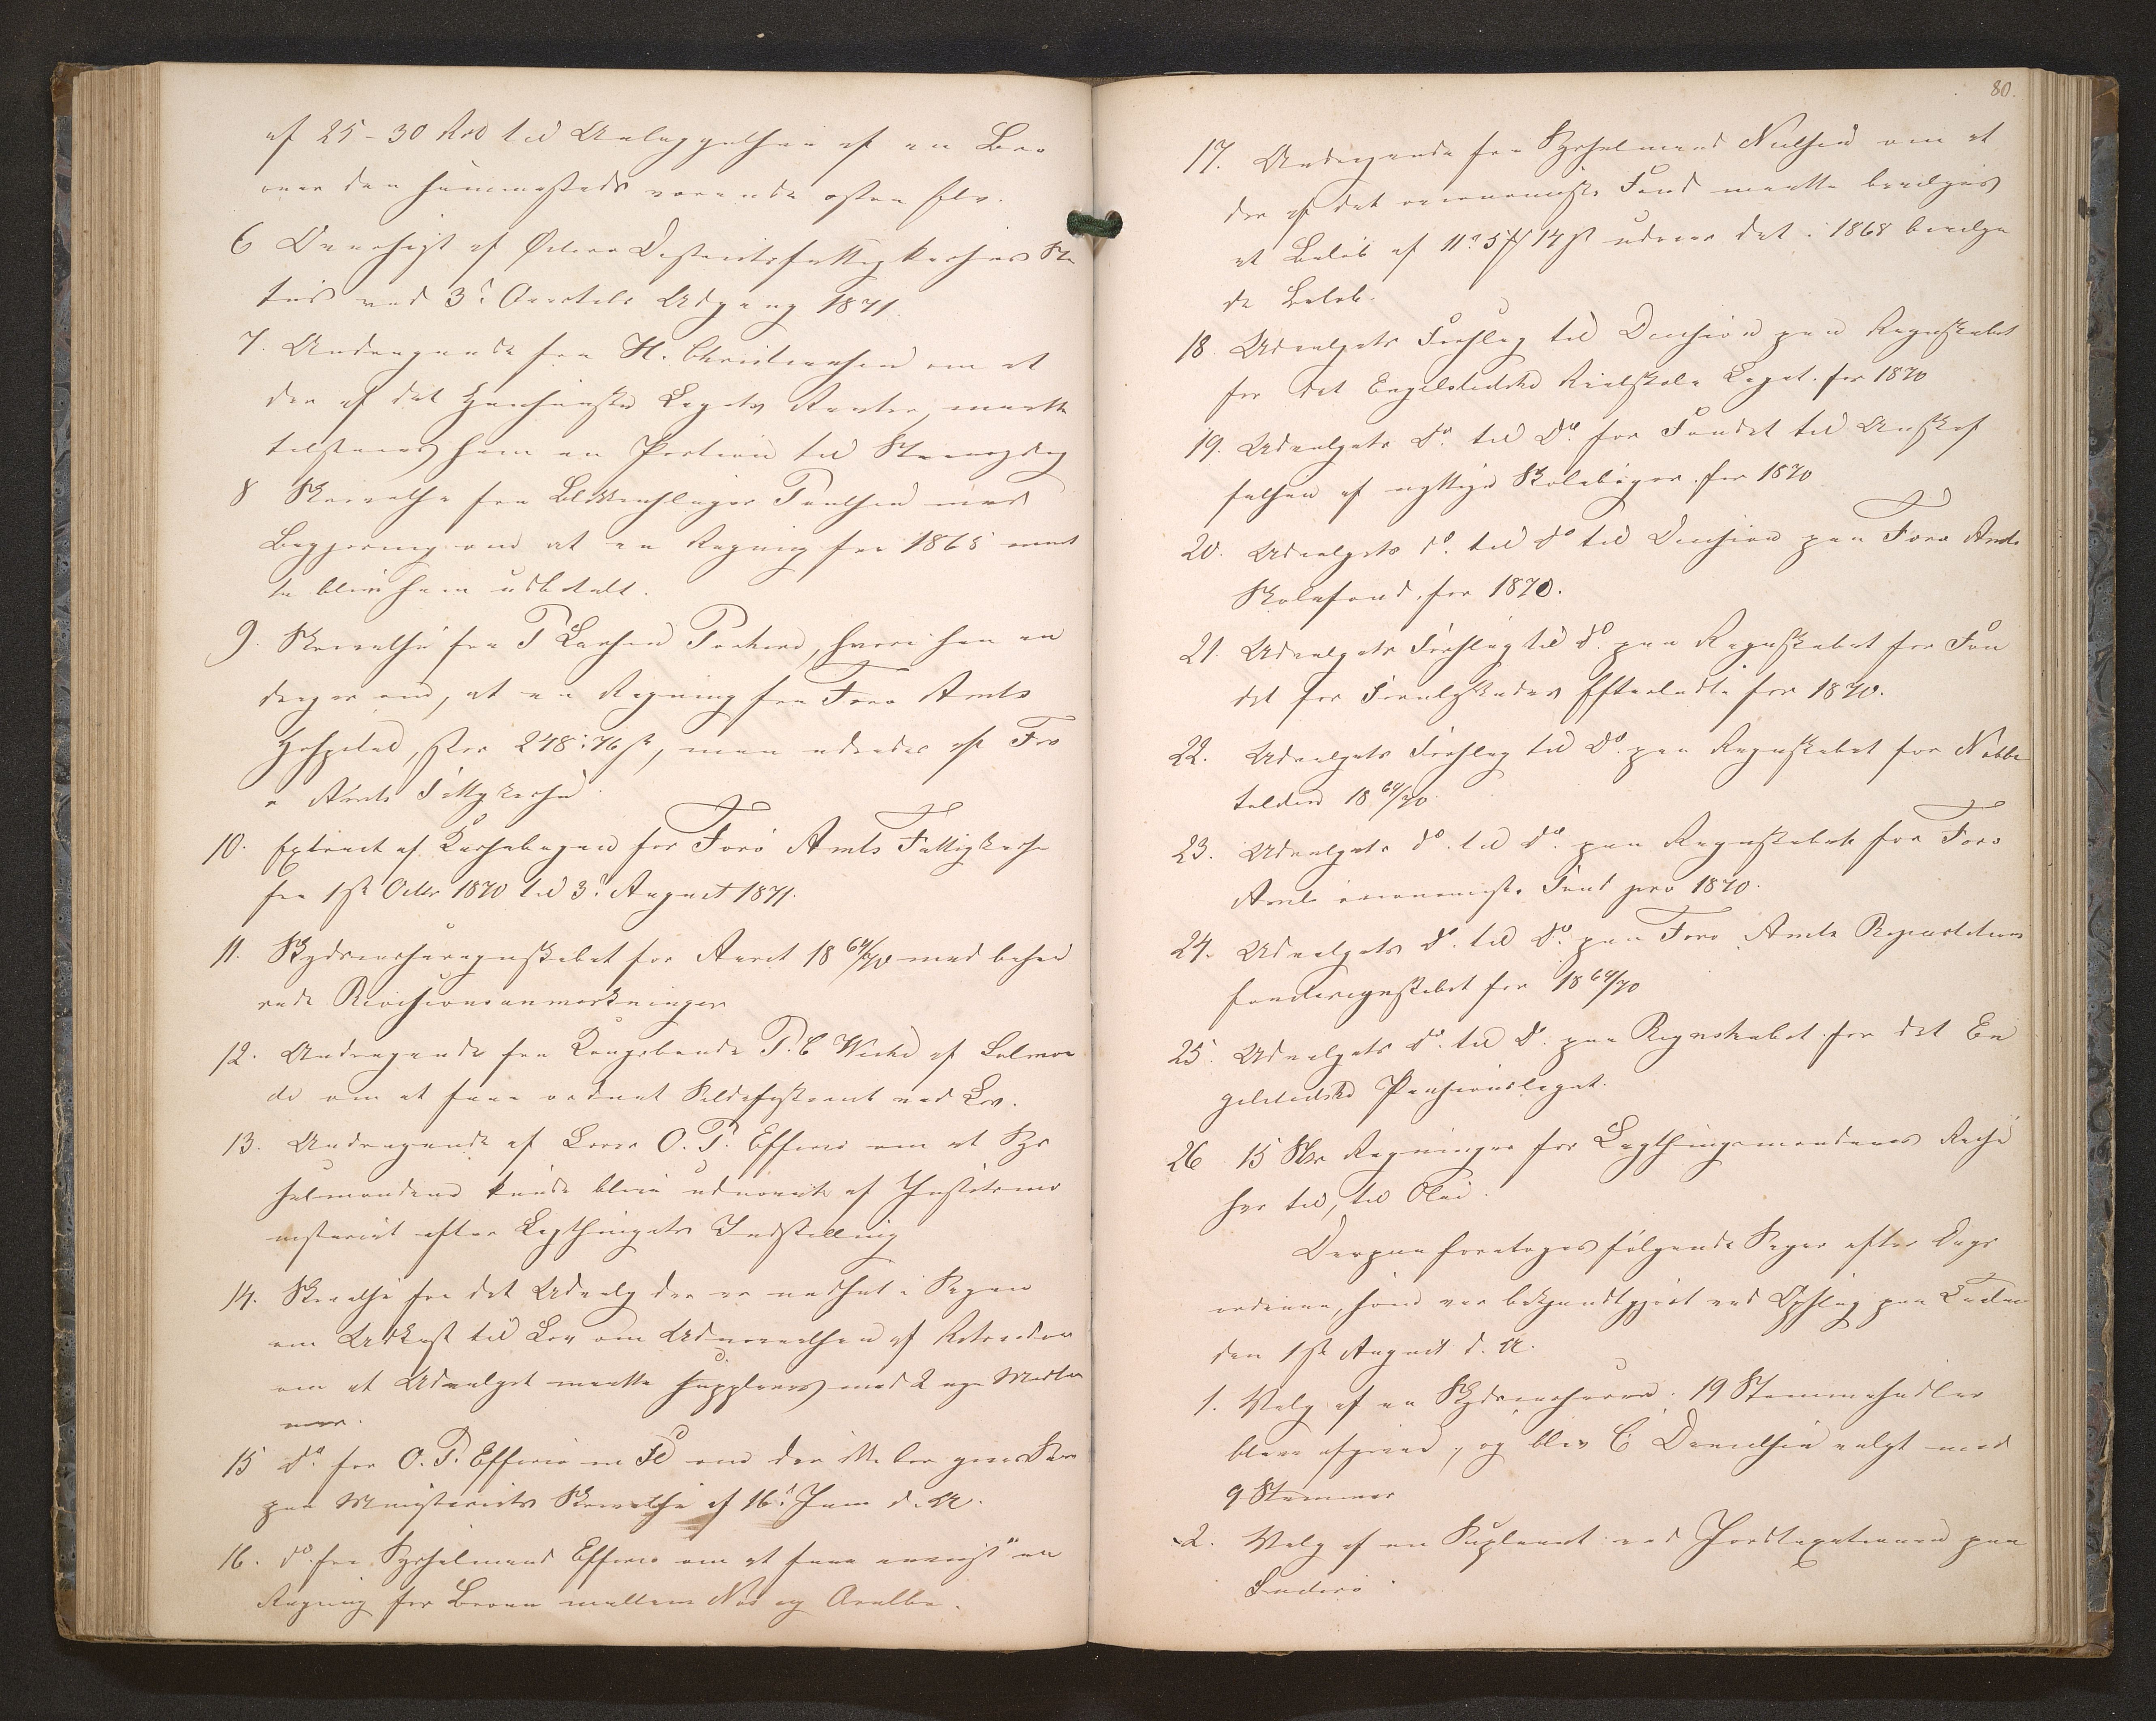 af 25-30 Rd til Anlæggelsen af en Bro
over den sammesteds værende østre Elv.
6 Oversigt af Østerø Distriktsfattigkasses Sta
tus ved 3d Qvartals Udgang 1871.
7. Andragende fra H. Christiansen om at
der af det Hansenske Legats Renter maatte
tilstaaes ham en Portion til
8 Skrivelse fra Blikkenslager Poulsen med
Begjæring om at en Regning fra 1865 maat
te blive ham udbetalt.
9. Skrivelse fra P Larsen Porkere, hvori han an
drager om, at en Regning fra Færø Amts
Hospital, stor 248 : 76 sk, maa udredes af Fær
ø Amts Fattigkasse.
10. Extract af Kassebogen for Færø Amts Fattigkasse
fra 1ste Octbr 1870 til 3d August 1871.
11. Skydsvæsensregnskabet for Aaret 18 69/70 med besva
rede Revisionsanmærkninger
12. Andragende fra Kongsbonde P. C Weihe af Selvraa
de om at faae ordnet Sildefiskeriet ved Lov.
13. Andragende af Lærer O. P. Effersø om at Sys
selmændene kunde blive udnævnt af Justitsmi
nisteriet efter Lagthingets Indstilling
14. Skrivelse fra det Udvalg der er nedsat i Sagen
om Udkast til Lov om Udnævnelsen af
om at Udvalget maatte suppleres med 2 nye Medlem
mer.
15 do fra O. P. Effersø om
paa Ministeriets Skrivelse af 16d Juni d. A.
16. do fra Sysselmand Effersø om at faae anvist en
Regning for Broen mellem Næs og Ørdevig.
80.
17. Andragende fra Sysselmand Nielsen om at
der af det oeconomiske Fond maatte bevilges
et Beløb af 5 14 sk udover det i 1868 bevilge
de Beløb.
18. Udvalgets Forslag til Decision paa Regnskabet
for det Engelstedske Realskole Legat for 1870
19. Udvalgets do til do for Fondet til Anskaf
felsen af nyttige Skolebøger for 1870
20. Udvalgets do til do til Decision paa Færø Amts
Skolefond for 1870.
21. Udvalgets Forslag til do paa Regnskabet for Fon
det for Forulykkedes Efterladte for 1870.
22. Udvalgets Forslag til do paa Regnskabet for Næbbe
tolden 18 69/70
23. Udvalgets do til do paa Regnskabet for Færø
Amts oeconomiske Fond pro 1870.
24. Udvalgets do til do paa Færø Amts Repartitions
fondsregnskabet for 18 69/70
25. Udvalgets do til do paa Regnskabet for det En
gelstedske Pensionslegat.
26 15 Stk Regninger for Lagthingsmændenes Reise
her til, til Olai.
Derpaa foretoges følgende Sager efter Dags
ordenen, som var bekjendtgjort ved Opslag paa
den 1ste August d. A.
1. Valg af en 19 Stemmesedler
bleve afgivne, og blev C Danielsen valgt med
9 Stemmer
2. Valg af en Supleant ved Jordtaxationen paa
Suderø